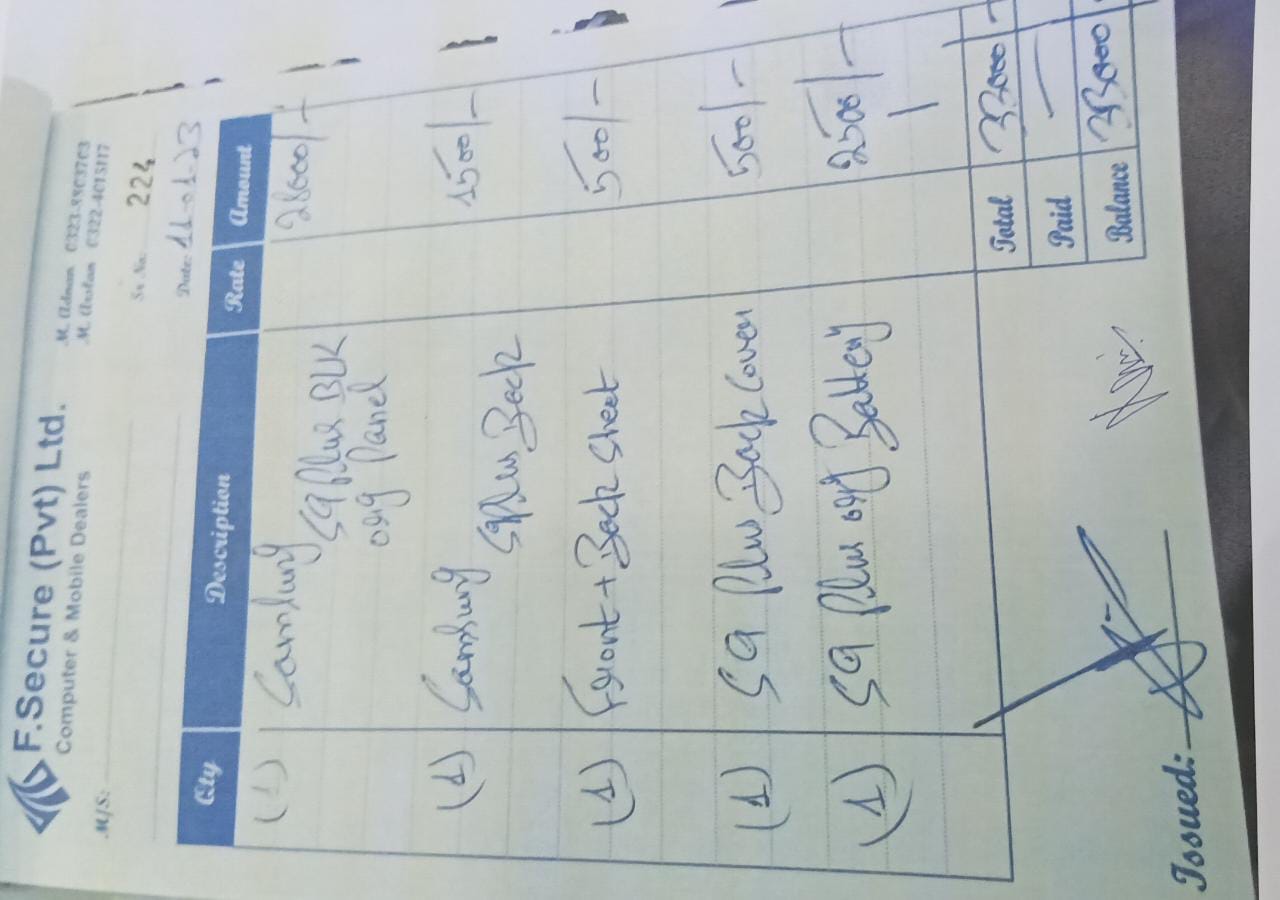 F.Secure (Pvt) Ltd.
Computer & Mobile Dealers
M. Adnan
M. Arslan
M/S:
Sr. No: 224
Date: 11-01-23
Qty Description Rate Amount
(1) Samsung 28000/-
S9 Plus BLK
orig Panel
(1) Samsung 1500/-
S9 Plus Back
(1) Front + Back Sheet 500/-
(1) S9 Plus Back Cover 500/-
(1) S9 Plus orig Battery 2500/-
Total 33000/-
Paid —
Balance 33000
Issued: